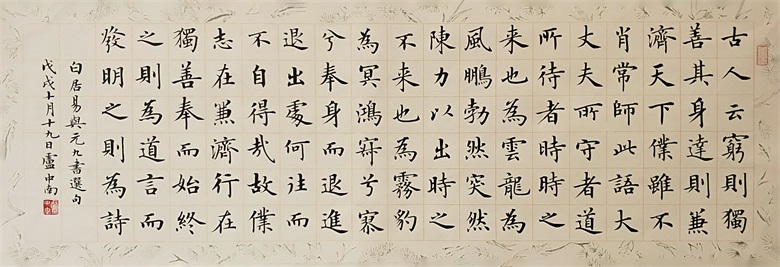 古人云窮則獨
善其身達則兼
濟天下僕雖不
肖常師此語大
丈夫所守者道
所待者時時之
来也為雲龍為
風鵬勃然突然
陳力以出時之
不来也為霧豹
為冥鴻寂兮寥
兮奉身而退進
退出處何往而
不自得哉故僕
志在兼濟行在
獨善奉而始終
之則為道言而
發明之則為詩
白居易與元九書選句
戊戌十月十九日盧中南